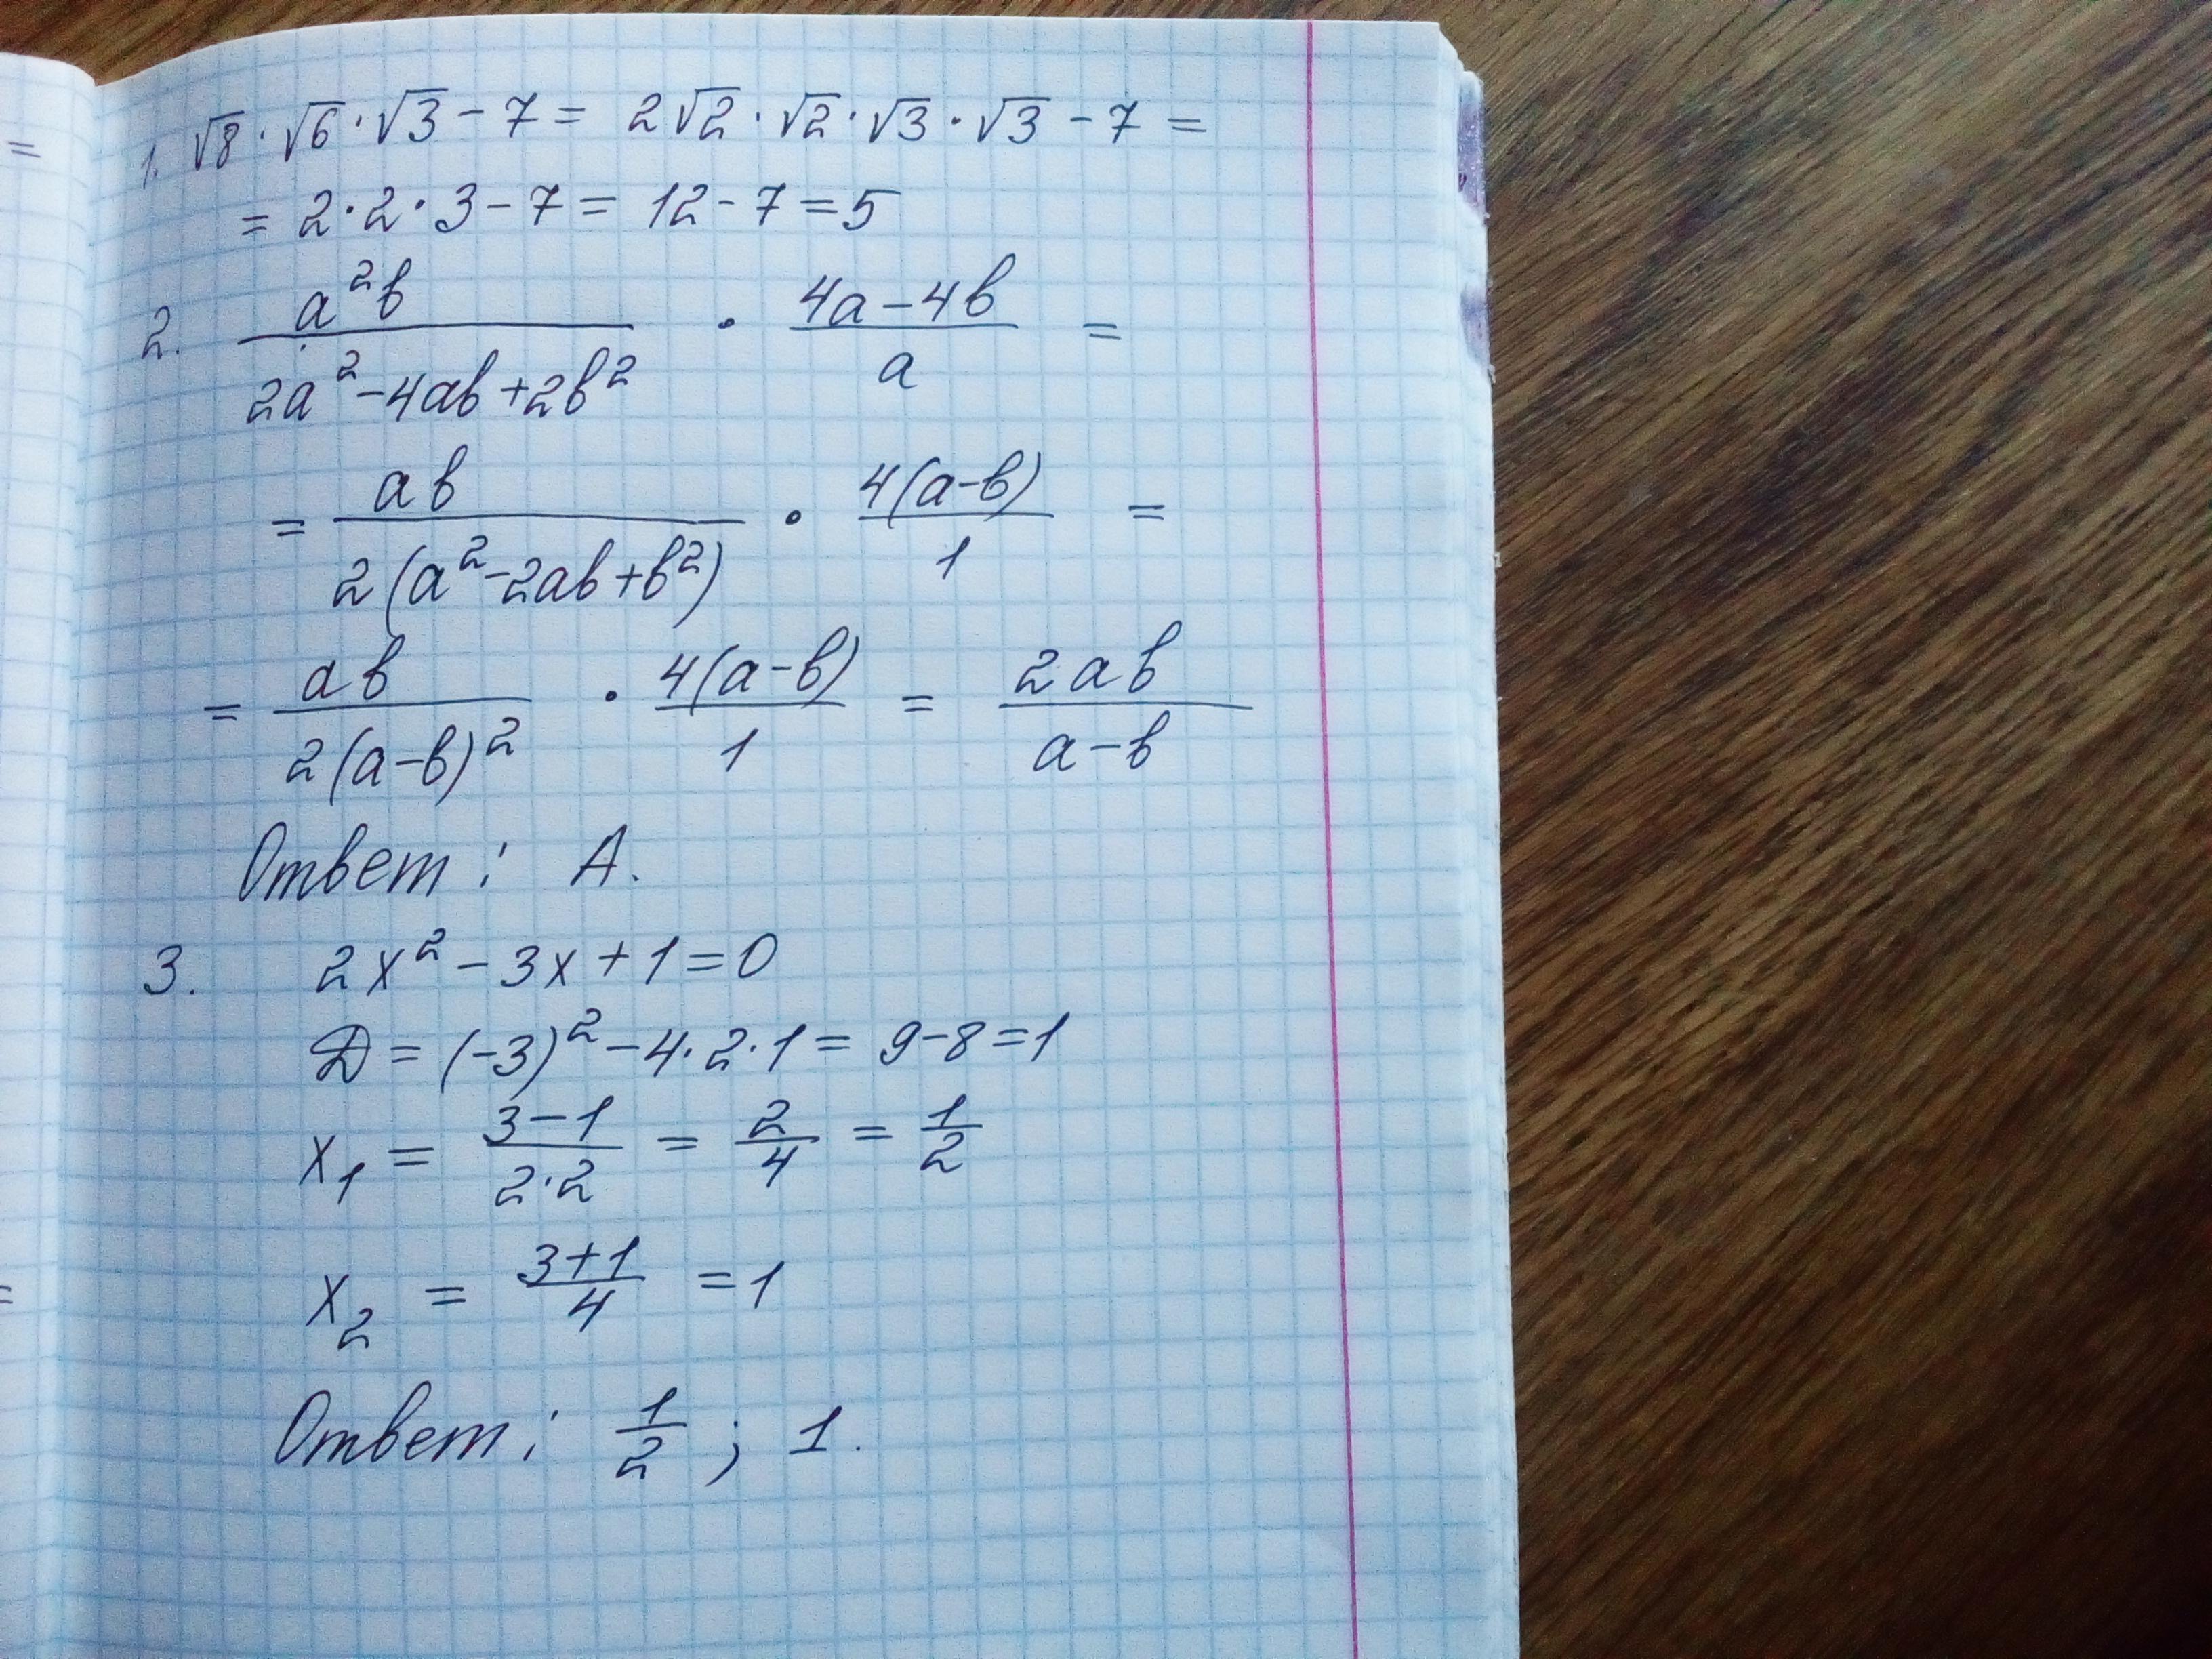 =
1. √8 · √6 · √3 − 7 = 2√2 · √2 · √3 · √3 − 7 =
= 2 · 2 · 3 − 7 = 12 − 7 = 5
2. a²b / (2a² − 4ab + 2b²) · (4a − 4b) / a =
= ab / 2(a² − 2ab + b²) · 4(a−b) / 1 =
= ab / 2(a−b)² · 4(a−b) / 1 = 2ab / (a−b)
Ответ: А.
3. 2x² − 3x + 1 = 0
D = (−3)² − 4·2·1 = 9−8 = 1
x₁ = (3−1) / 2·2 = 2/4 = 1/2
x₂ = (3+1) / 4 = 1
=
Ответ: 1/2 ; 1.